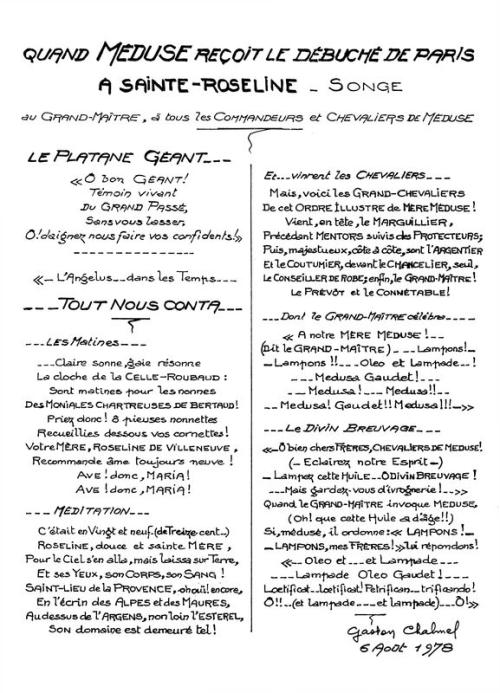 QUAND MÉDUSE REÇOIT LE DÉBUCHÉ DE PARIS
A SAINTE-ROSELINE _ SONGE
au GRAND-MAÎTRE, à tous les COMMANDEURS et CHEVALIERS DE MÉDUSE
LE PLATANE GÉANT___
«Ô bon GÉANT!
Témoin vivant
DU GRAND PASSÉ,
Sans vous lasser,
Ô! daignez nous faire vos confidents!»
«_ L'Angelus__dans les Temps____
___TOUT NOUS CONTA___
___LES Matines___
___Claire sonne, gaie résonne
La cloche de la CELLE-ROUBAUD :
Sont matines pour les nonnes
Des MONIALES CHARTREUSES DE BERTAUD!
Priez donc! 8 pieuses nonnettes
Recueillies dessous vos cornettes!
Votre MÈRE, ROSELINE DE VILLENEUVE,
Recommande âme toujours neuve !
AVE ! donc, MARIA!
AVE ! donc, MARIA!
___ MÉDITATION___
C'était en Vingt et neuf. (de Treize cent__)
ROSELINE, douce et sainte MÈRE,
Pour le Ciel s'en alla, mais laissa sur Terre,
Et ses YEUX, son CORPS, son SANG !
SAINT-LIEU de la PROVENCE, oh oui! encore,
En l'écrin des ALPES et des MAURES,
Au dessus de l'ARGENS, non loin l'ESTEREL,
SON domaine est demeuré tel!
Et...vinrent les CHEVALIERS___
Mais, voici les GRAND-CHEVALIERS
De cet ORDRE ILLUSTRE de MÈRE MÉDUSE!
Vient, en tête, le MARGUILLIER,
Précédant MENTORS suivis des PROTECTEURS;
Puis, majestueux, côte à côte, sont l'ARGENTIER
Et le COUTUMIER, devant le CHANCELIER, seul,
Le CONSEILLER DE ROBE; enfin, le GRAND-MAÎTRE!
LE PRÉVÔT et le CONNÉTABLE!
___Dont le GRAND-MAÎTRE célèbre____
« A notre MÈRE MÉDUSE !__
(Dit le GRAND-MAÎTRE)_ _ _Lampons!_
_Lampons !!__Oleo et Lampade__!
___Medusa Gaudet!___
__Medusa!___Medusa!!__
_ Medusa! Gaudet!! Medusa!!!__»
___Le DIVIN BREUVAGE__
«_Ô bien chers FRÈRES, CHEVALIERS DE MÉDUSE!
(_ Eclairez notre Esprit_)
_ Lampez cette HUILE__Ô DIVIN BREUVAGE !
___Mais gardez-vous d'ivrognerie !__»
Quand le GRAND-MAÎTRE invoque MÉDUSE,
(Oh! que cette Huile a d'âge!!)
Si, médusé, il ordonne: « LAMPONS !_
_LAMPONS, mes FRÈRES!» lui répondons!
«__ Oleo et___et Lampade___
___Lampade Oleo Gaudet !___
Laetificat__laetificat! Pétrifican__trificando!
Ô!!__(et Lampade___et lampade)___Ô!»
Gaston Chalmel
6 Août 1978